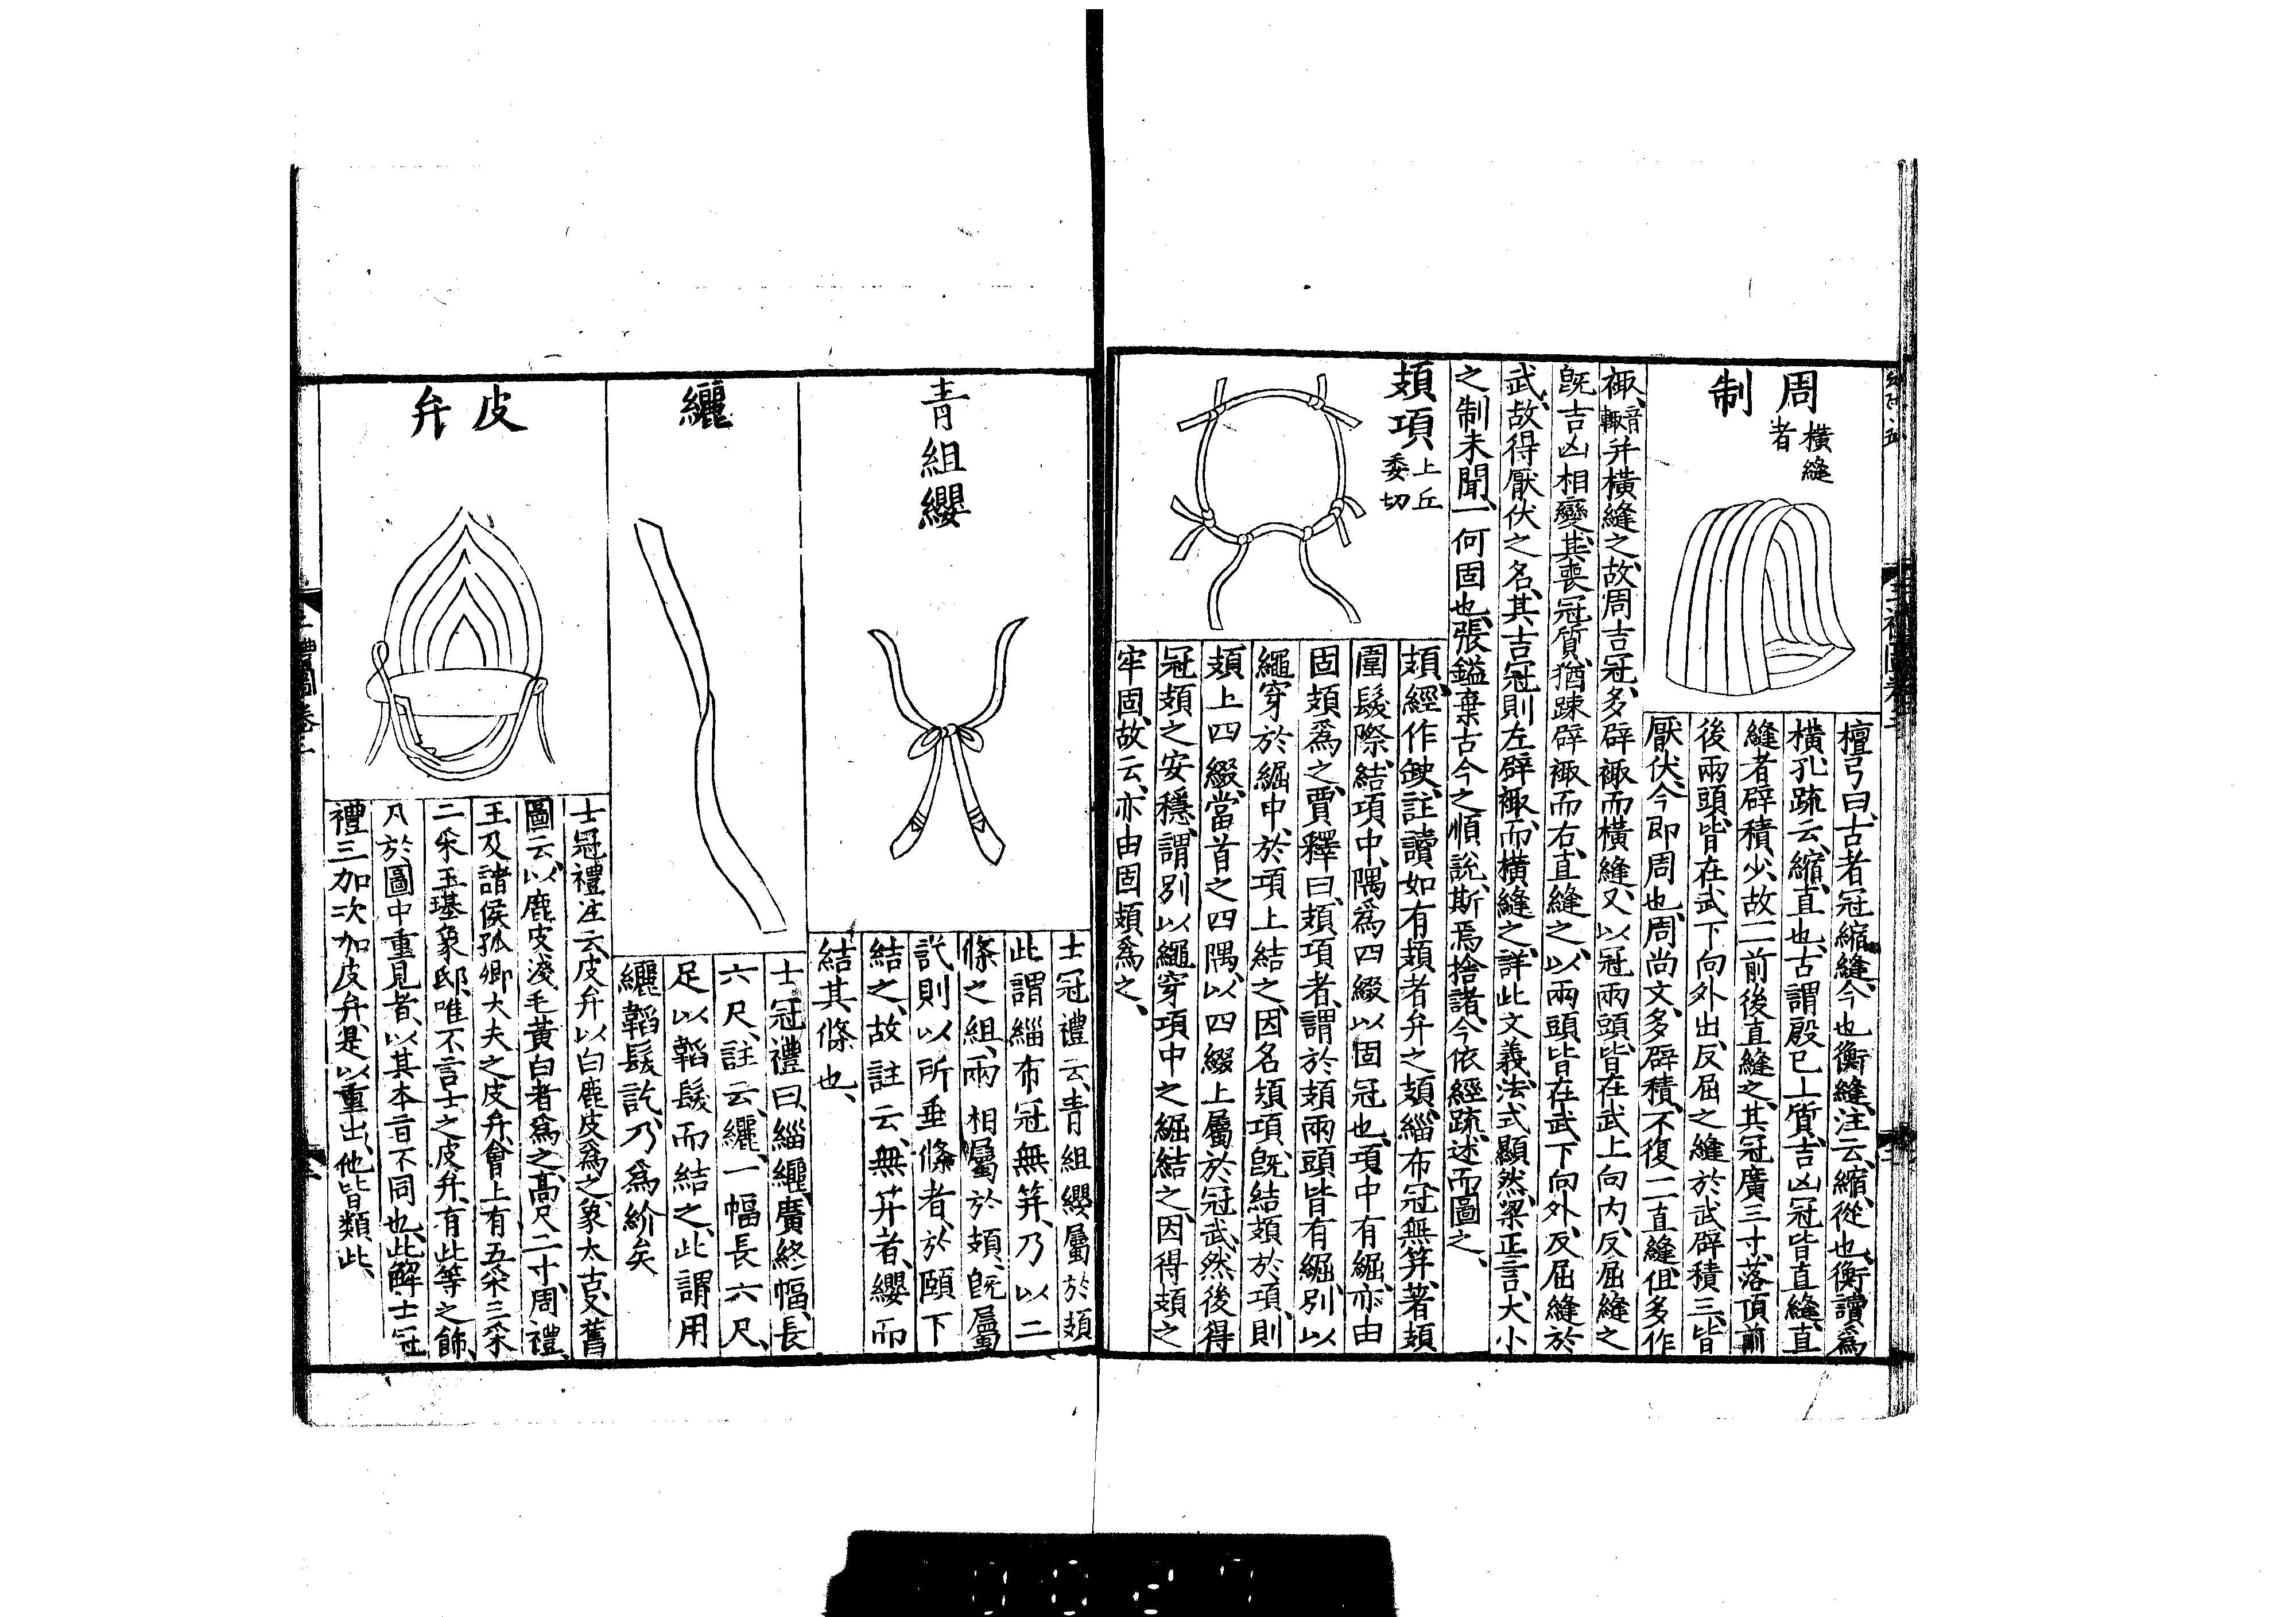 周
制
橫縫
者
檀弓曰、古者冠縮縫、今也衡縫、注云、縮、從也、衡讀爲
橫、孔疏云、縮、直也、古謂殷已上質、吉凶冠皆直縫、直
縫者、辟積少、故一一前後直縫之、其冠廣三寸、落頂前
後兩頭、皆在武下向外出、反屈之縫於武、辟積三、皆
厭伏、今即周也、周尚文、多辟積、不復一一直縫、但多作
襵、音輒并橫縫之、故周吉冠、多辟襵而橫縫、又以冠兩頭、皆在武上向内、反屈縫之
旣吉凶相變、其喪冠質、猶疎辟襵而右、直縫之、以兩頭皆在武下向外、反屈縫於
武、故得厭伏之名、其吉冠則左辟襵、而橫縫之、詳此文義、法式顯然、梁正言、大小
之制未聞、一何固也、張鎰棄古今之順說、斯焉捨諸、今依經疏、述而圖之、
頍項
上丘
委切
頍、經作缺、註讀如有頍者弁之頍、緇布冠無笄、著頍
圍髮際、結項中、隅爲四綴以固冠也、項中有䋿、亦由
固頍爲之、賈釋曰、頍項者、謂於頍兩頭皆有䋿、別以
繩穿於䋿中、於項上結之、因名頍項、旣結頍於項、則
頍上四綴、當首之四隅、以四綴上屬於冠武、然後得
冠頍之安穩、謂別以繩穿項中之䋿結之、因得頍之
牢固、故云、亦由固頍爲之、
青組纓
士冠禮云、青組纓屬於頍
此謂緇布冠無笄、乃以二
條之組、兩相屬於頍、旣屬
訖、則以所垂條者、於頤下
結之、故註云、無笄者、纓而
結其條也、
纚
士冠禮曰、緇纚、廣終幅、長
六尺、註云、纚、一幅長六尺、
足以韜髮而結之、此謂用
纚韜髮訖、乃爲紒矣
皮
弁
士冠禮注云、皮弁以白鹿皮爲之、象大古、又舊
圖云、以鹿皮淺毛黃白者爲之、高尺二寸、周禮、
王及諸侯孤卿大夫之皮弁、會上有五采三采
二采玉璂象邸、唯不言士之皮弁、有此等之飾、
凡於圖中重見者、以其本旨不同也、此解士冠
禮三加、次加皮弁、是以重出、他皆類此、
三禮圖卷三